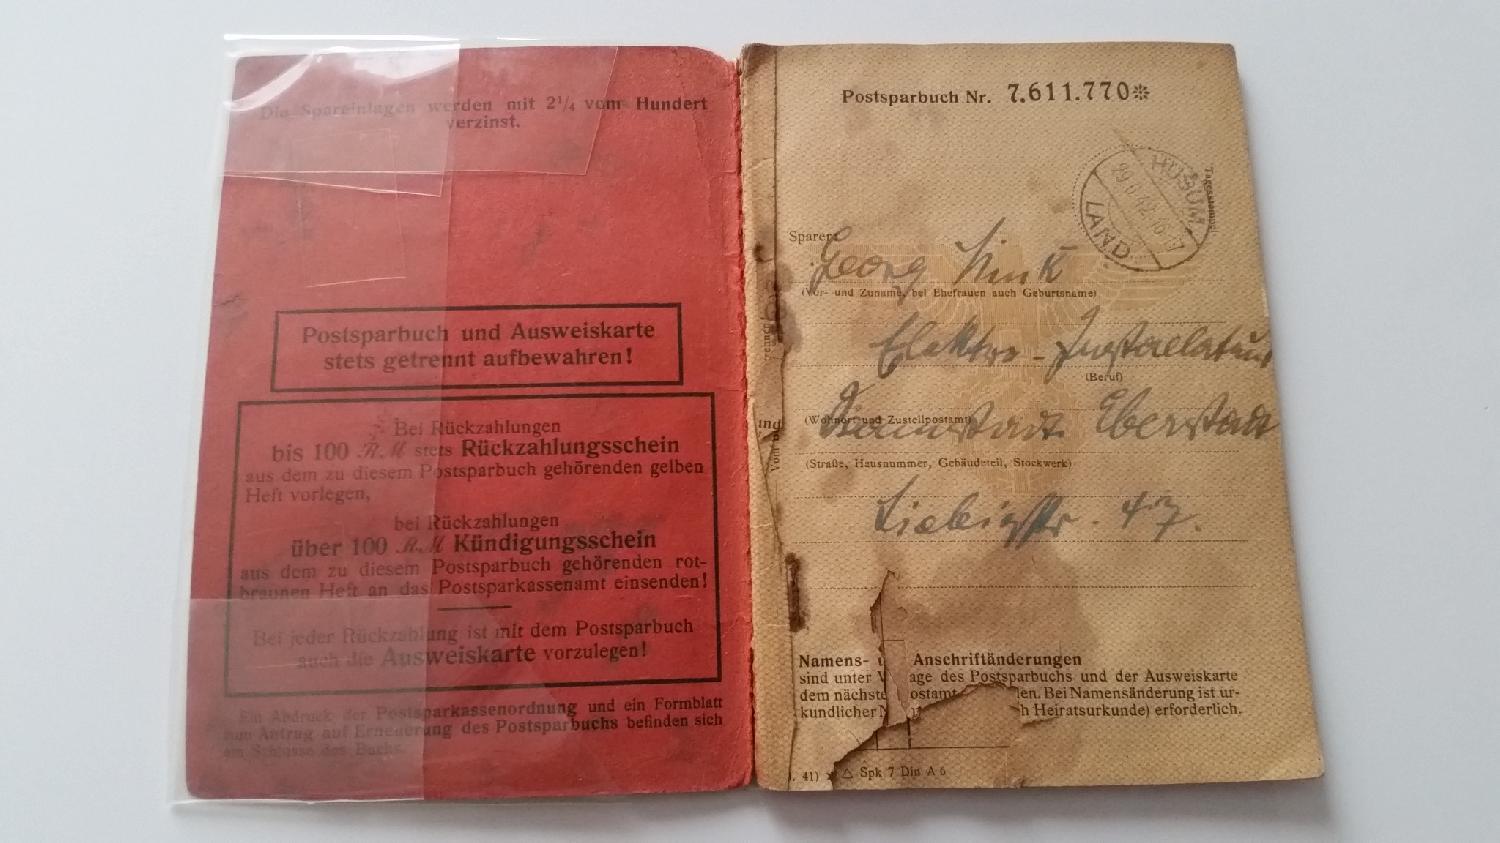 Die Spareinlagen werden mit 2¼ vom Hundert
verzinst.
Postsparbuch und Ausweiskarte
stets getrennt aufbewahren!
Bei Rückzahlungen
bis 100 R.M stets Rückzahlungsschein
aus dem zu diesem Postsparbuch gehörenden gelben
Heft vorlegen,
bei Rückzahlungen
über 100 R.M Kündigungsschein
aus dem zu diesem Postsparbuch gehörenden rot-
braunen Heft an das Postsparkassenamt einsenden!
Bei jeder Rückzahlung ist mit dem Postsparbuch
auch die Ausweiskarte vorzulegen!
Ein Abdruck der Postsparkassenordnung und ein Formblatt
zum Antrag auf Erneuerung des Postsparbuchs befinden sich
am Schlusse des Buchs.
Postsparbuch Nr. 7.611.770*
HUSUM
LAND
Tagesstempel
Sparer:
Georg
(Vor- und Zuname, bei Ehefrauen auch Geburtsname)
Elektro-Installateur
(Beruf)
(Wohnort und Zustellpostamt)
Darmstadt Eberstadt
(Straße, Hausnummer, Gebäudeteil, Stockwerk)
Liebigstr. 47.
Namens- Anschriftänderungen
sind unter age des Postsparbuchs und der Ausweiskarte
dem nächste ostamt en. Bei Namensänderung ist ur-
kundlicher N h Heiratsurkunde) erforderlich.
. 41) △ Spk 7 Din A 6